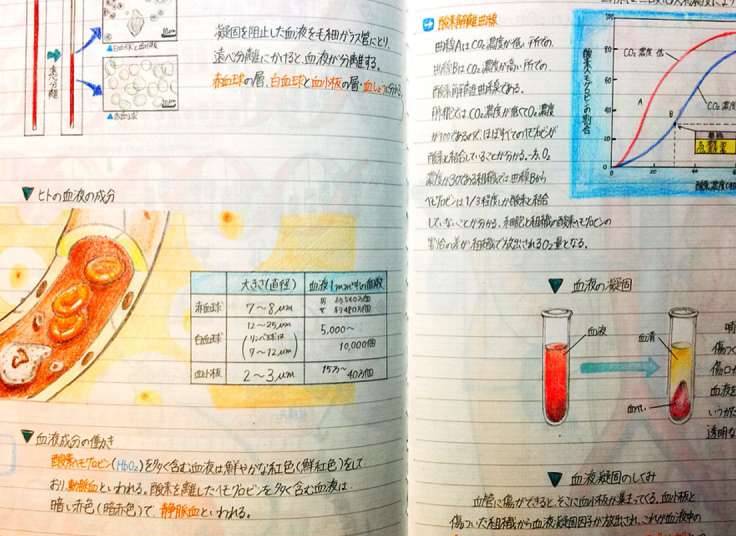 遠心分離
▼白血球と血小板
▼赤血球
凝固を阻止した血液を毛細ガラス管にとり、
遠心分離にかけると、血液が分離する。
赤血球の層、白血球と血小板の層・血しょうに分かれ
▼ヒトの血液の成分
大きさ(直径)
血液1mm³中の個数
赤血球
7〜8μm
男 約500万個
女 約450万個
白血球
12〜25μm
(リンパ球は
7〜12μm)
5,000〜
10,000個
血小板
2〜3μm
15万〜
40万個
▼血液成分の働き
酸素ヘモグロビン(HbO₂)を多く含む血液は鮮やかな紅色(鮮紅色)をして
おり、動脈血といわれる。酸素を離したヘモグロビンを多く含む血液は
暗い赤色(暗赤色)で、静脈血といわれる。
→酸素解離曲線
曲線AはCO₂濃度が低い所での、
曲線BはCO₂濃度が高い所での
酸素解離曲線である。
肺胞ではCO₂濃度が低くてO₂濃度
が100であるので、ほぼすべてのヘモグロビンが
酸素と結合していることが分かる。一方、O₂
濃度が30である組織では曲線Bから
ヘモグロビンは1/3程度しか酸素と結合
していないことが分かる。肺胞と組織の酸素ヘモグロビンの
割合の差が組織で放出されるO₂量となる。
酸素ヘモグロビンの割合
100
80
60
40
20
0
CO₂濃度 低
A
CO₂濃度
B
組織
0
20
40
60
▼血液の凝固
血液
血清
血ぺい
傷つ
傷口
血液を
透明な
▼血液凝固のしくみ
血管に傷ができると、そこに血小板が集まってくる。血小板と
傷ついた組織から血液凝固因子が放出され、これが血液中の